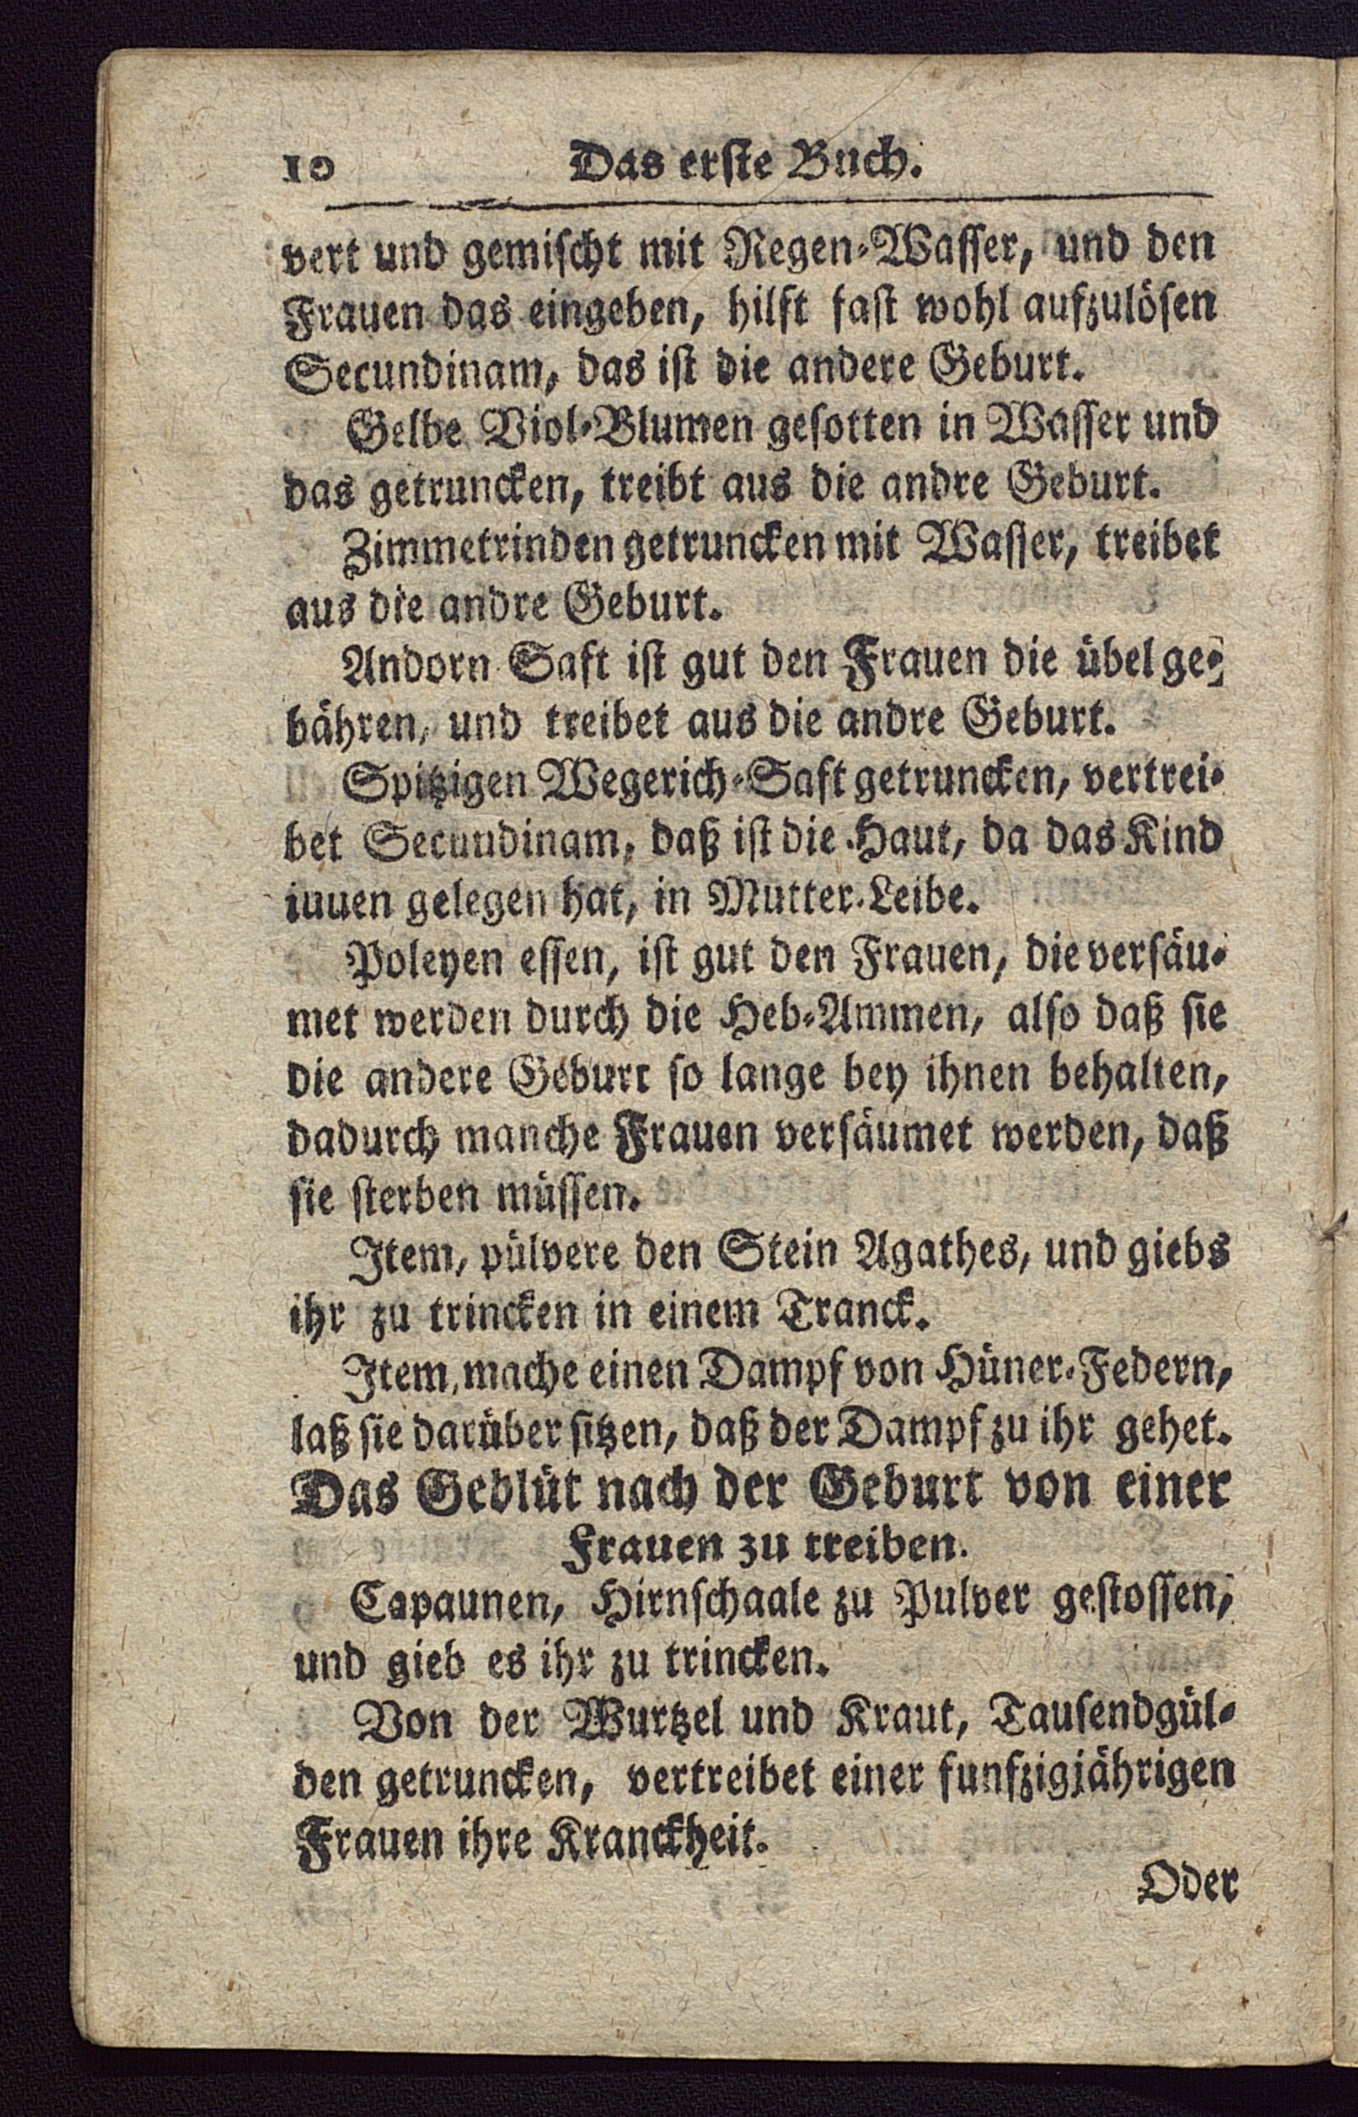 10 Das erste Buch.
vert und gemischt mit Regen-Wasser, und den
Frauen das eingeben, hilft fast wohl aufzulösen
Secundinam, das ist die andere Geburt.
Gelbe Viol-Blumen gesotten in Wasser und
das getruncken, treibt aus die andre Geburt.
Zimmetrinden getruncken mit Wasser, treibet
aus die andre Geburt.
Andorn Saft ist gut den Frauen die übel ge-
bähren, und treibet aus die andre Geburt.
Spitzigen Wegerich-Saft getruncken, vertrei-
bet Secuudinam, daß ist die Haut, da das Kind
iuuen gelegen hat, in Mutter-Leibe.
Poleyen essen, ist gut den Frauen, die versäu-
met werden durch die Heb-Ammen, also daß sie
die andere Geburt so lange bey ihnen behalten,
dadurch manche Frauen versäumet werden, daß
sie sterben müssen.
Item, pülvere den Stein Agathes, und giebs
ihr zu trincken in einem Tranck.
Item, mache einen Dampf von Hüner-Federn,
laß sie darüber sitzen, daß der Dampf zu ihr gehet.
Das Geblüt nach der Geburt von einer
Frauen zu treiben.
Capaunen, Hirnschaale zu Pulver gestossen,
und gieb es ihr zu trincken.
Von der Wurtzel und Kraut, Tausendgül-
den getruncken, vertreibet einer funfzigjährigen
Frauen ihre Kranckheit.
Oder